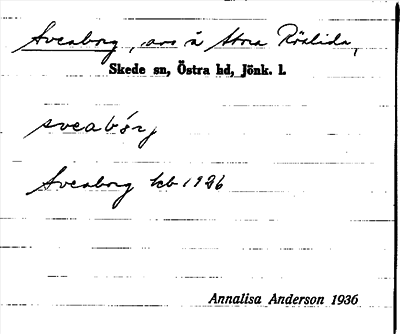 Sveaborg, avs å Stora Röslida,
Skede sn, Östra hd, Jönk. l.
sveabórj
Sveaborg kb 1926
Annalisa Anderson 1936